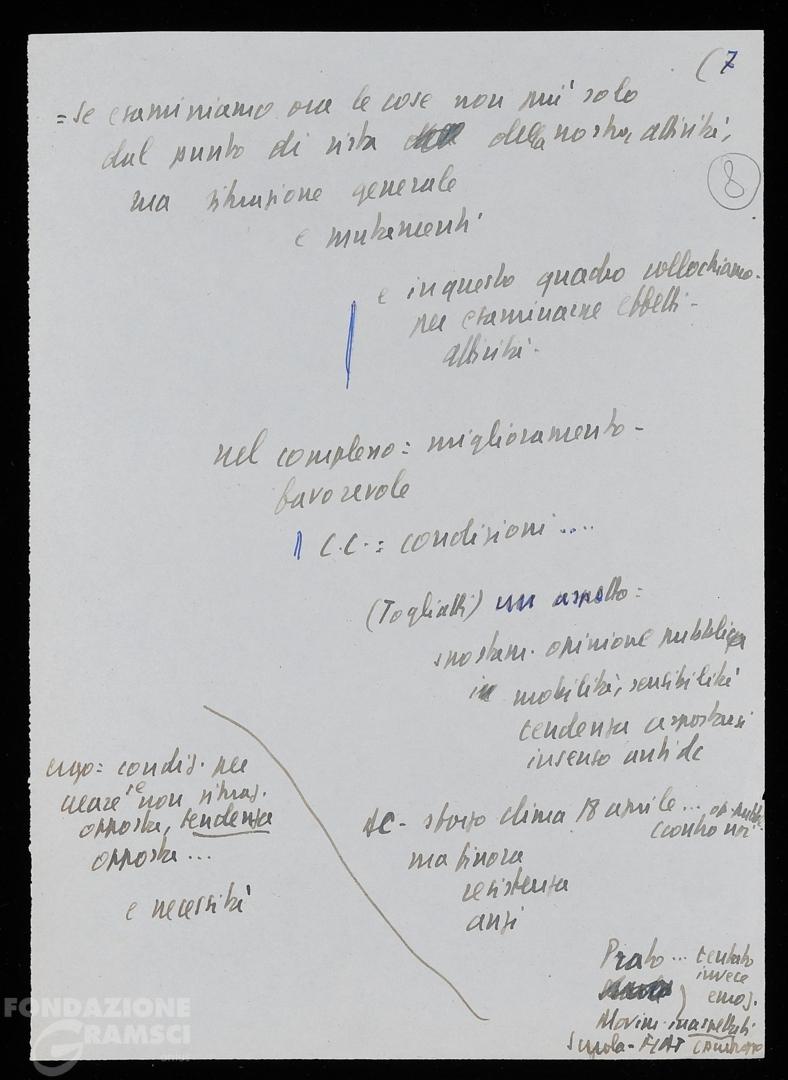 (7
= Se esaminiamo ora le cose non più solo
dal punto di vista della nostra attività,
8
ma situazione generale
e mutamenti
e in questo quadro collochiamo -
per esaminarne effetti -
attività -
nel complesso = miglioramento -
favorevole
C.C. = condizioni ....
(Togliatti) un aspetto =
spostam. opinione pubblica
in mobilità, sensibilità
tendenza a spostarsi
in senso anti dc
ergo = condiz. per
creare se non situaz.
opposta, tendenza
opposta ...
e necessità
DC - sforzo clima 18 aprile ... op. pubb.
(contro noi
ma finora
resistenza
anzi
Prato ... tentato
invece
) emoz.
Movim. inaspettati
Scuola - FIAT
FONDAZIONE
GRAMSCI
onlus